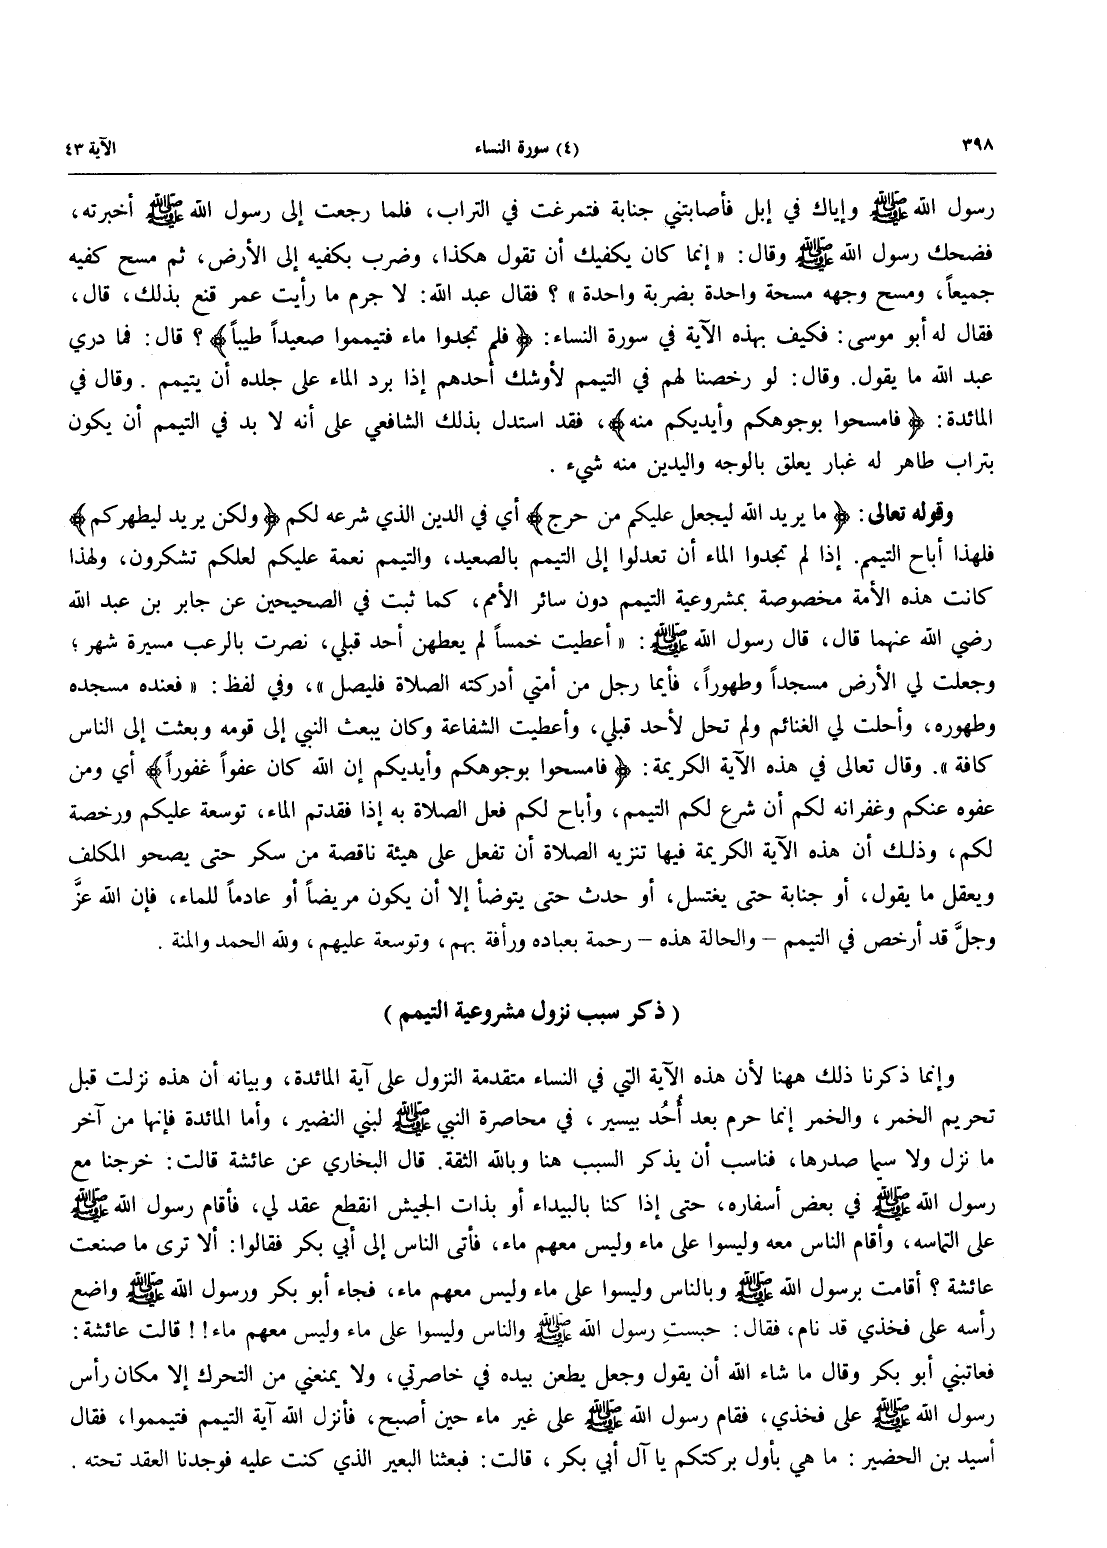 ٣٩٨ (٤) سورة النساء الآية ٤٣
رسول الله ﷺ وإياك في إبل فأصابتني جنابة فتمرغت في التراب، فلما رجعت إلى رسول الله ﷺ أخبرته،
فضحك رسول الله ﷺ وقال: « إنما كان يكفيك أن تقول هكذا، وضرب بكفيه إلى الأرض، ثم مسح كفيه
جميعاً، ومسح وجهه مسحة واحدة بضربة واحدة » ؟ فقال عبد الله: لا جرم ما رأيت عمر قنع بذلك، قال،
فقال له أبو موسى: فكيف بهذه الآية في سورة النساء: ﴿ فلم تجدوا ماء فتيمموا صعيداً طيباً﴾ ؟ قال: فما دري
عبد الله ما يقول. وقال: لو رخصنا لهم في التيمم لأوشك أحدهم إذا برد الماء على جلده أن يتيمم . وقال في
المائدة: ﴿ فامسحوا بوجوهكم وأيديكم منه﴾، فقد استدل بذلك الشافعي على أنه لا بد في التيمم أن يكون
بتراب طاهر له غبار يعلق بالوجه واليدين منه شيء .
وقوله تعالى: ﴿ ما يريد الله ليجعل عليكم من حرج﴾ أي في الدين الذي شرعه لكم ﴿ولكن يريد ليطهركم﴾
فلهذا أباح التيمم. إذا لم تجدوا الماء أن تعدلوا إلى التيمم بالصعيد، والتيمم نعمة عليكم لعلكم تشكرون، ولهذا
كانت هذه الأمة مخصوصة بمشروعية التيمم دون سائر الأمم، كما ثبت في الصحيحين عن جابر بن عبد الله
رضي الله عنهما قال، قال رسول الله ﷺ: « أعطيت خمساً لم يعطهن أحد قبلي، نصرت بالرعب مسيرة شهر ؛
وجعلت لي الأرض مسجداً وطهوراً، فأيما رجل من أمتي أدركته الصلاة فليصل »، وفي لفظ: « فعنده مسجده
وطهوره، وأحلت لي الغنائم ولم تحل لأحد قبلي، وأعطيت الشفاعة وكان يبعث النبي إلى قومه وبعثت إلى الناس
كافة ». وقال تعالى في هذه الآية الكريمة: ﴿ فامسحوا بوجوهكم وأيديكم إن الله كان عفواً غفوراً﴾ أي ومن
عفوه عنكم وغفرانه لكم أن شرع لكم التيمم، وأباح لكم فعل الصلاة به إذا فقدتم الماء، توسعة عليكم ورخصة
لكم، وذلك أن هذه الآية الكريمة فيها تنزيه الصلاة أن تفعل على هيئة ناقصة من سكر حتى يصحو المكلف
ويعقل ما يقول، أو جنابة حتى يغتسل، أو حدث حتى يتوضأ إلا أن يكون مريضاً أو عادماً للماء، فإن الله عزَّ
وجلَّ قد أرخص في التيمم – والحالة هذه – رحمة بعباده ورأفة بهم، وتوسعة عليهم، ولله الحمد والمنة .
( ذكر سبب نزول مشروعية التيمم )
وإنما ذكرنا ذلك ههنا لأن هذه الآية التي في النساء متقدمة النزول على آية المائدة، وبيانه أن هذه نزلت قبل
تحريم الخمر، والخمر إنما حرم بعد أُحُد بيسير، في محاصرة النبي ﷺ لبني النضير، وأما المائدة فإنها من آخر
ما نزل ولا سيما صدرها، فناسب أن يذكر السبب هنا وبالله الثقة. قال البخاري عن عائشة قالت: خرجنا مع
رسول الله ﷺ في بعض أسفاره، حتى إذا كنا بالبيداء أو بذات الجيش انقطع عقد لي، فأقام رسول الله ﷺ
على التماسه، وأقام الناس معه وليسوا على ماء وليس معهم ماء، فأتى الناس إلى أبي بكر فقالوا: ألا ترى ما صنعت
عائشة ؟ أقامت برسول الله ﷺ وبالناس وليسوا على ماء وليس معهم ماء، فجاء أبو بكر ورسول الله ﷺ واضع
رأسه على فخذي قد نام، فقال: حبستِ رسول الله ﷺ والناس وليسوا على ماء وليس معهم ماء!! قالت عائشة:
فعاتبني أبو بكر وقال ما شاء الله أن يقول وجعل يطعن بيده في خاصرتي، ولا يمنعني من التحرك إلا مكان رأس
رسول الله ﷺ على فخذي، فقام رسول الله ﷺ على غير ماء حين أصبح، فأنزل الله آية التيمم فتيمموا، فقال
أسيد بن الحضير : ما هي بأول بركتكم يا آل أبي بكر، قالت: فبعثنا البعير الذي كنت عليه فوجدنا العقد تحته .